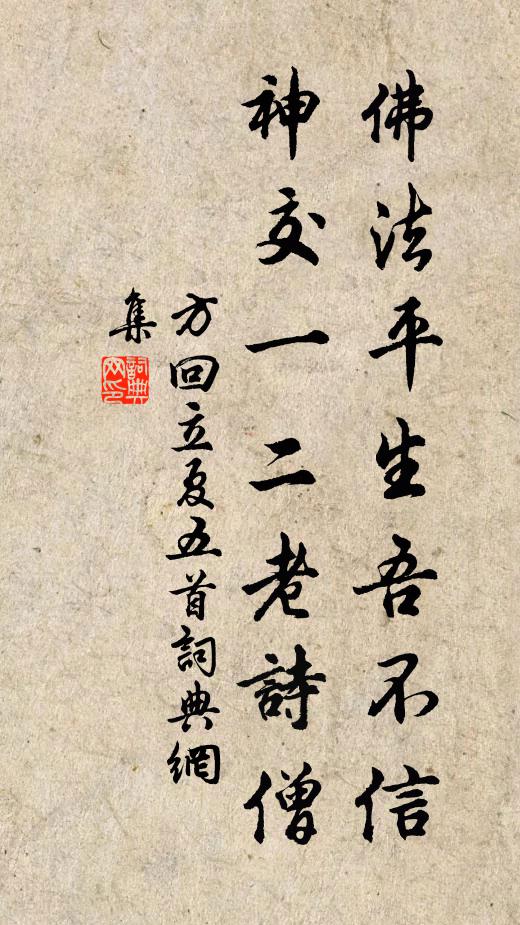 佛法平生吾不信
神交一二老詩僧
方回立夏五首詞典網
集
詞典
网印